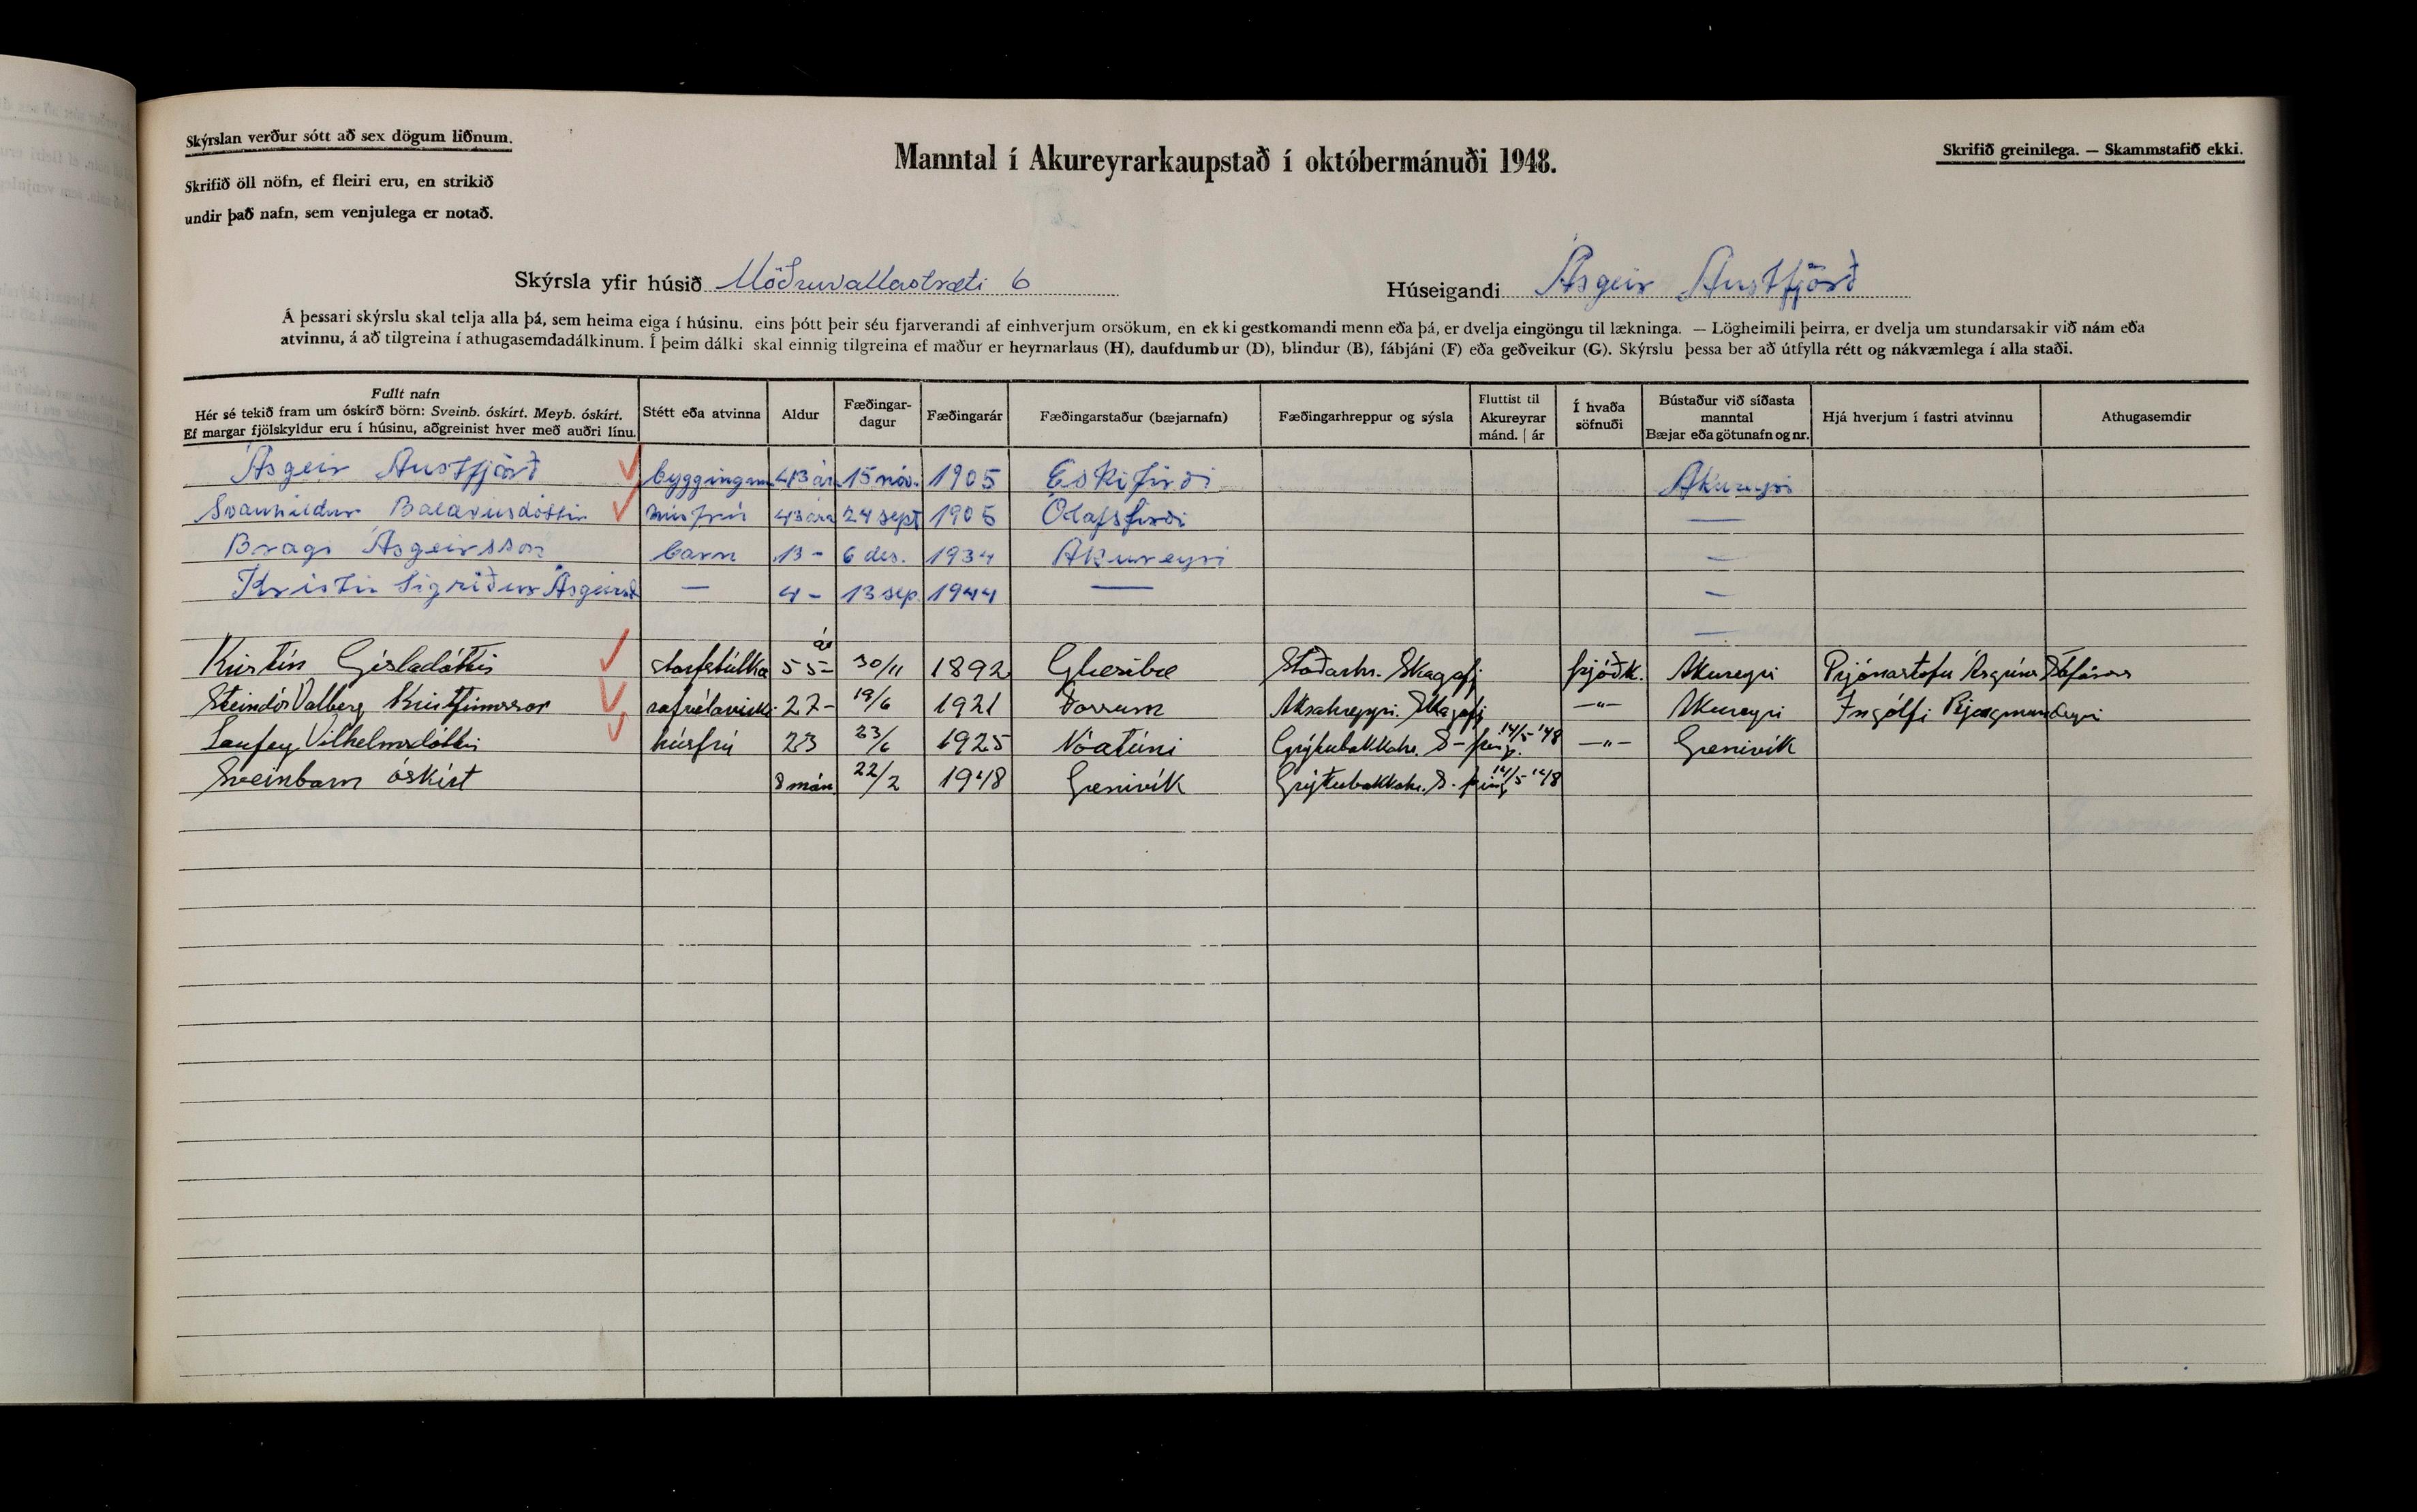 Skýrslan verður sótt að sex dögum liðnum.
Skrifið öll nöfn, ef fleiri eru, en strikið
undir það nafn, sem venjulega er notað.
Manntal í Akureyrarkaupstað í októbermánuði 1948.
Skrifið greinilega. — Skammstafið ekki.
Skýrsla yfir húsið Möðruvallastræti 6
Húseigandi Ásgeir Austfjörð
Á þessari skýrslu skal telja alla þá, sem heima eiga í húsinu, eins þótt þeir séu fjarverandi af einhverjum orsökum, en ekki gestkomandi menn eða þá, er dvelja eingöngu til lækninga. — Lögheimili þeirra, er dvelja um stundarsakir við nám eða
atvinnu, á að tilgreina í athugasemdadálkinum. Í þeim dálki skal einnig tilgreina ef maður er heyrnarlaus (H), daufdumbur (D), blindur (B), fábjáni (F) eða geðveikur (G). Skýrslu þessa ber að útfylla rétt og nákvæmlega í alla staði.
Fullt nafn
Hér sé tekið fram um óskírð börn: Sveinb. óskírt. Meyb. óskírt.
Ef margar fjölskyldur eru í húsinu, aðgreinist hver með auðri línu.
Stétt eða atvinna
Aldur
Fæðingar-
dagur
Fæðingarár
Fæðingarstaður (bæjarnafn)
Fæðingarhreppur og sýsla
Fluttist til
Akureyrar
mánd. | ár
Í hvaða
söfnuði
Bústaður við síðasta
manntal
Bæjar eða götunafn og nr.
Hjá hverjum í fastri atvinnu
Athugasemdir
Ásgeir Austfjörð byggingam. 43 ára 15 nóv. 1905 Eskifirði Akureyri
Svanhildur Baldvinsdóttir húsfrú 43 ára 24 sept 1905 Ólafsfirði —
Bragi Ásgeirsson barn 13 - 6 des. 1934 Akureyri —
Kristín Sigríður Ásgeirsd — 4 - 13 sep. 1944 — —
—
Kristín Gísladóttir starfstúlka 55 ár 30/11 1892 Skagafj þjóðk. Akureyri Prjónastofu Ásgríms Stefánss
Steindór Valberg Kristfinnsson rafvélavirki 27 - 19/6 1921 Akrahreppi. Skagafj —"— Akureyri Ingólfi
Laufey Vilhelmsdóttir húsfrú 23 23/6 1925 Nóatúni Grýtubakkahr. S-þing. 14/5 '48 —"— Grenivík
Sveinbarn óskírt 8 mán. 22/2 1948 Grenivík Grýtubakkahr. S-þing 14/5 '48